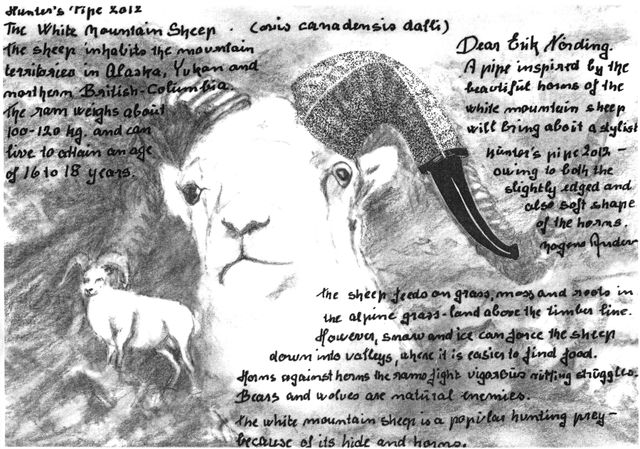 Hunter's Pipe 2012
The White Mountain Sheep. (ovis canadensis dalli)
the sheep inhabits the mountain
territories in Alaska, Yukan and
northern British-Columbia.
The ram weighs about
100-120 kg. and can
live to attain an age
of 16 to 18 years.
Dear Erik Nörding.
A pipe inspired by the
beautiful horns of the
white mountain sheep
will bring aboit a stylist
Hunter's pipe 2012 –
owing to both the
slightly edged and
also soft shape
of the horns.
Mogens
the sheep feeds on grass, moss and roots in
the alpine grass-land above the timber line.
However, snow and ice can force the sheep
down into valleys, where it is easier to find food.
Horns against horns the rams fight vigorous rutting struggles.
Bears and wolves are natural enemies.
the white mountain sheep is a popular hunting prey–
because of its hide and horns.